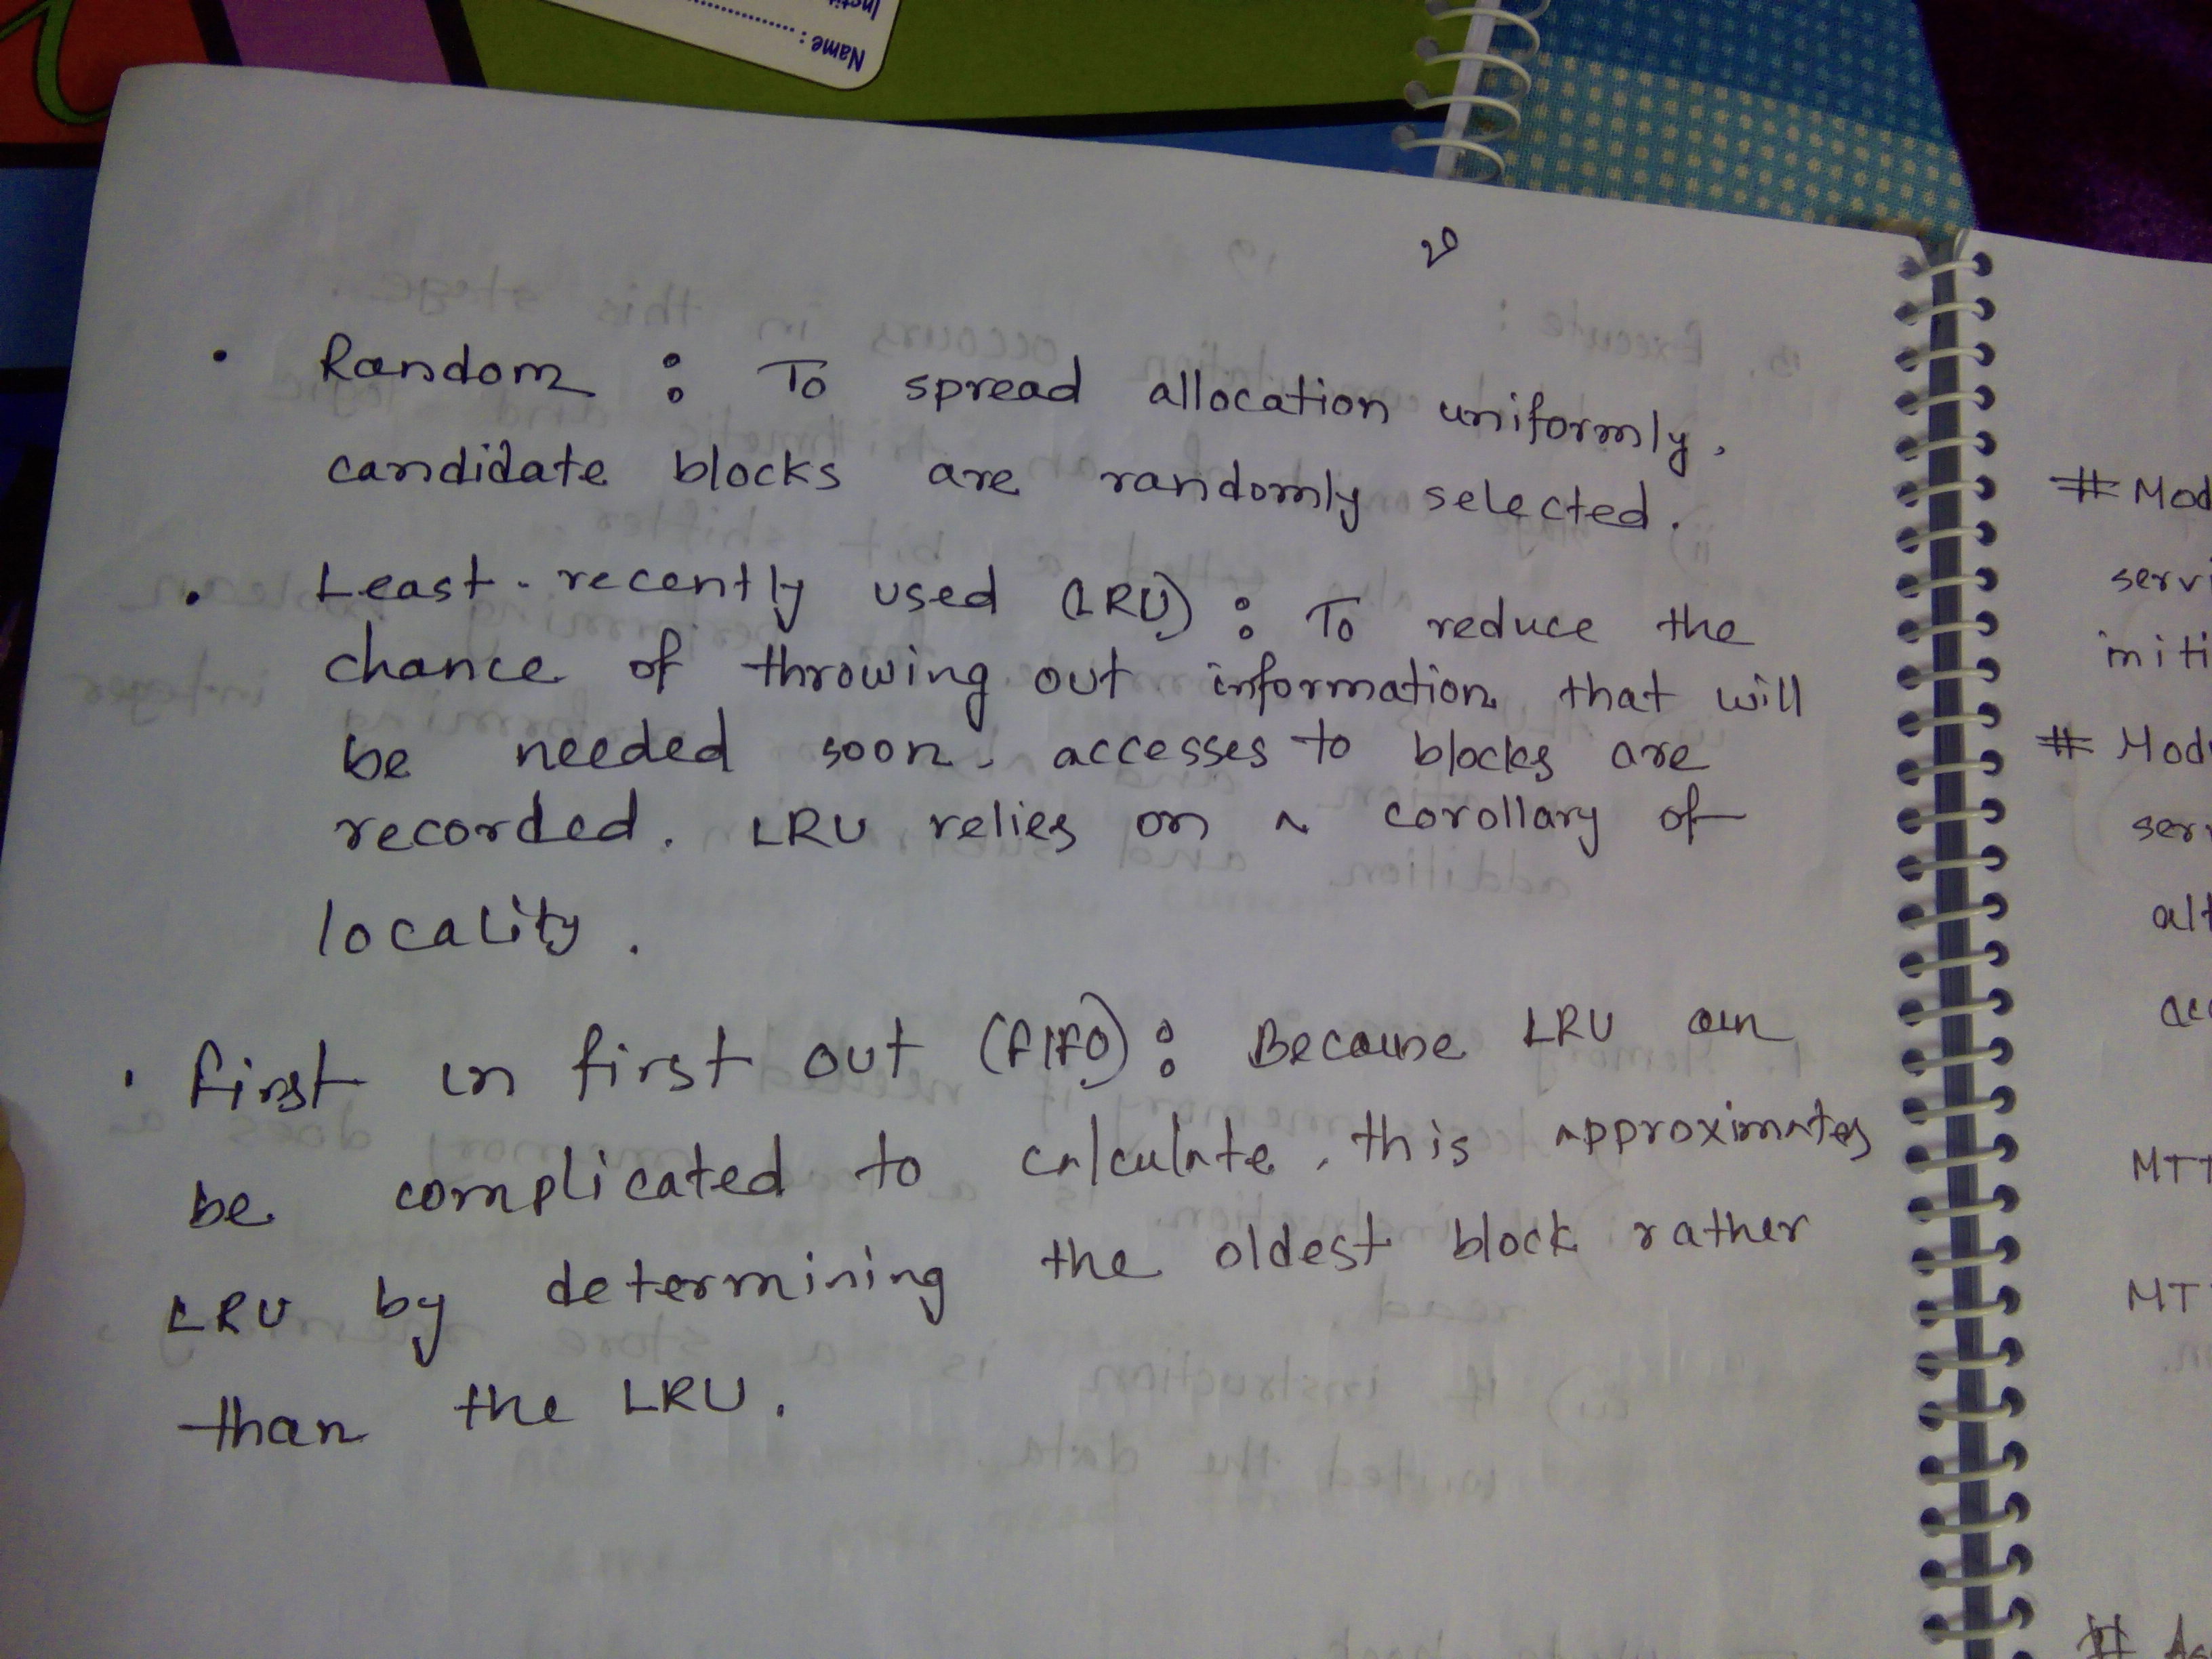 Name :
20
• Random : To spread allocation uniformly,
candidate blocks are randomly selected.
• Least-recently used (LRU) : To reduce the
chance of throwing out information that will
be needed soon, accesses to blocks are
recorded. LRU relies on a corollary of
locality.
• First in first out (FIFO) : Because LRU can
be complicated to calculate, this approximates
LRU by determining the oldest block rather
than the LRU.
# Mod
servi
initi
# Modu
ser
alt
acc
MTT
MT
#